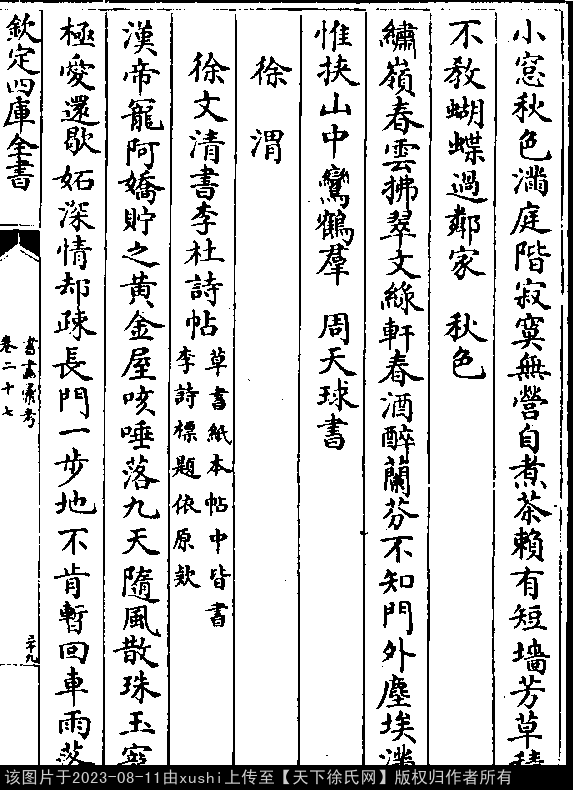 小窓秋色滿庭階寂寞無營自煮茶賴有短墻芳草積
不教蝴蝶過鄰家　秋色
繡嶺春雲拂翠文綠軒春酒醉蘭芬不知門外塵埃滿
惟挾山中鸞鶴羣　周天球書
徐渭
徐文清書李杜詩帖
草書紙本帖中皆書
李詩標題依原欵
漢帝寵阿嬌貯之黄金屋咳唾落九天隨風散珠玉寵
極愛還歇妬深情却疎長門一步地不肯暫回車雨落
欽定四庫全書
書畫彙考
卷二十七
二十九
该图片于2023-08-11由xushi上传至【天下徐氏网】版权归作者所有